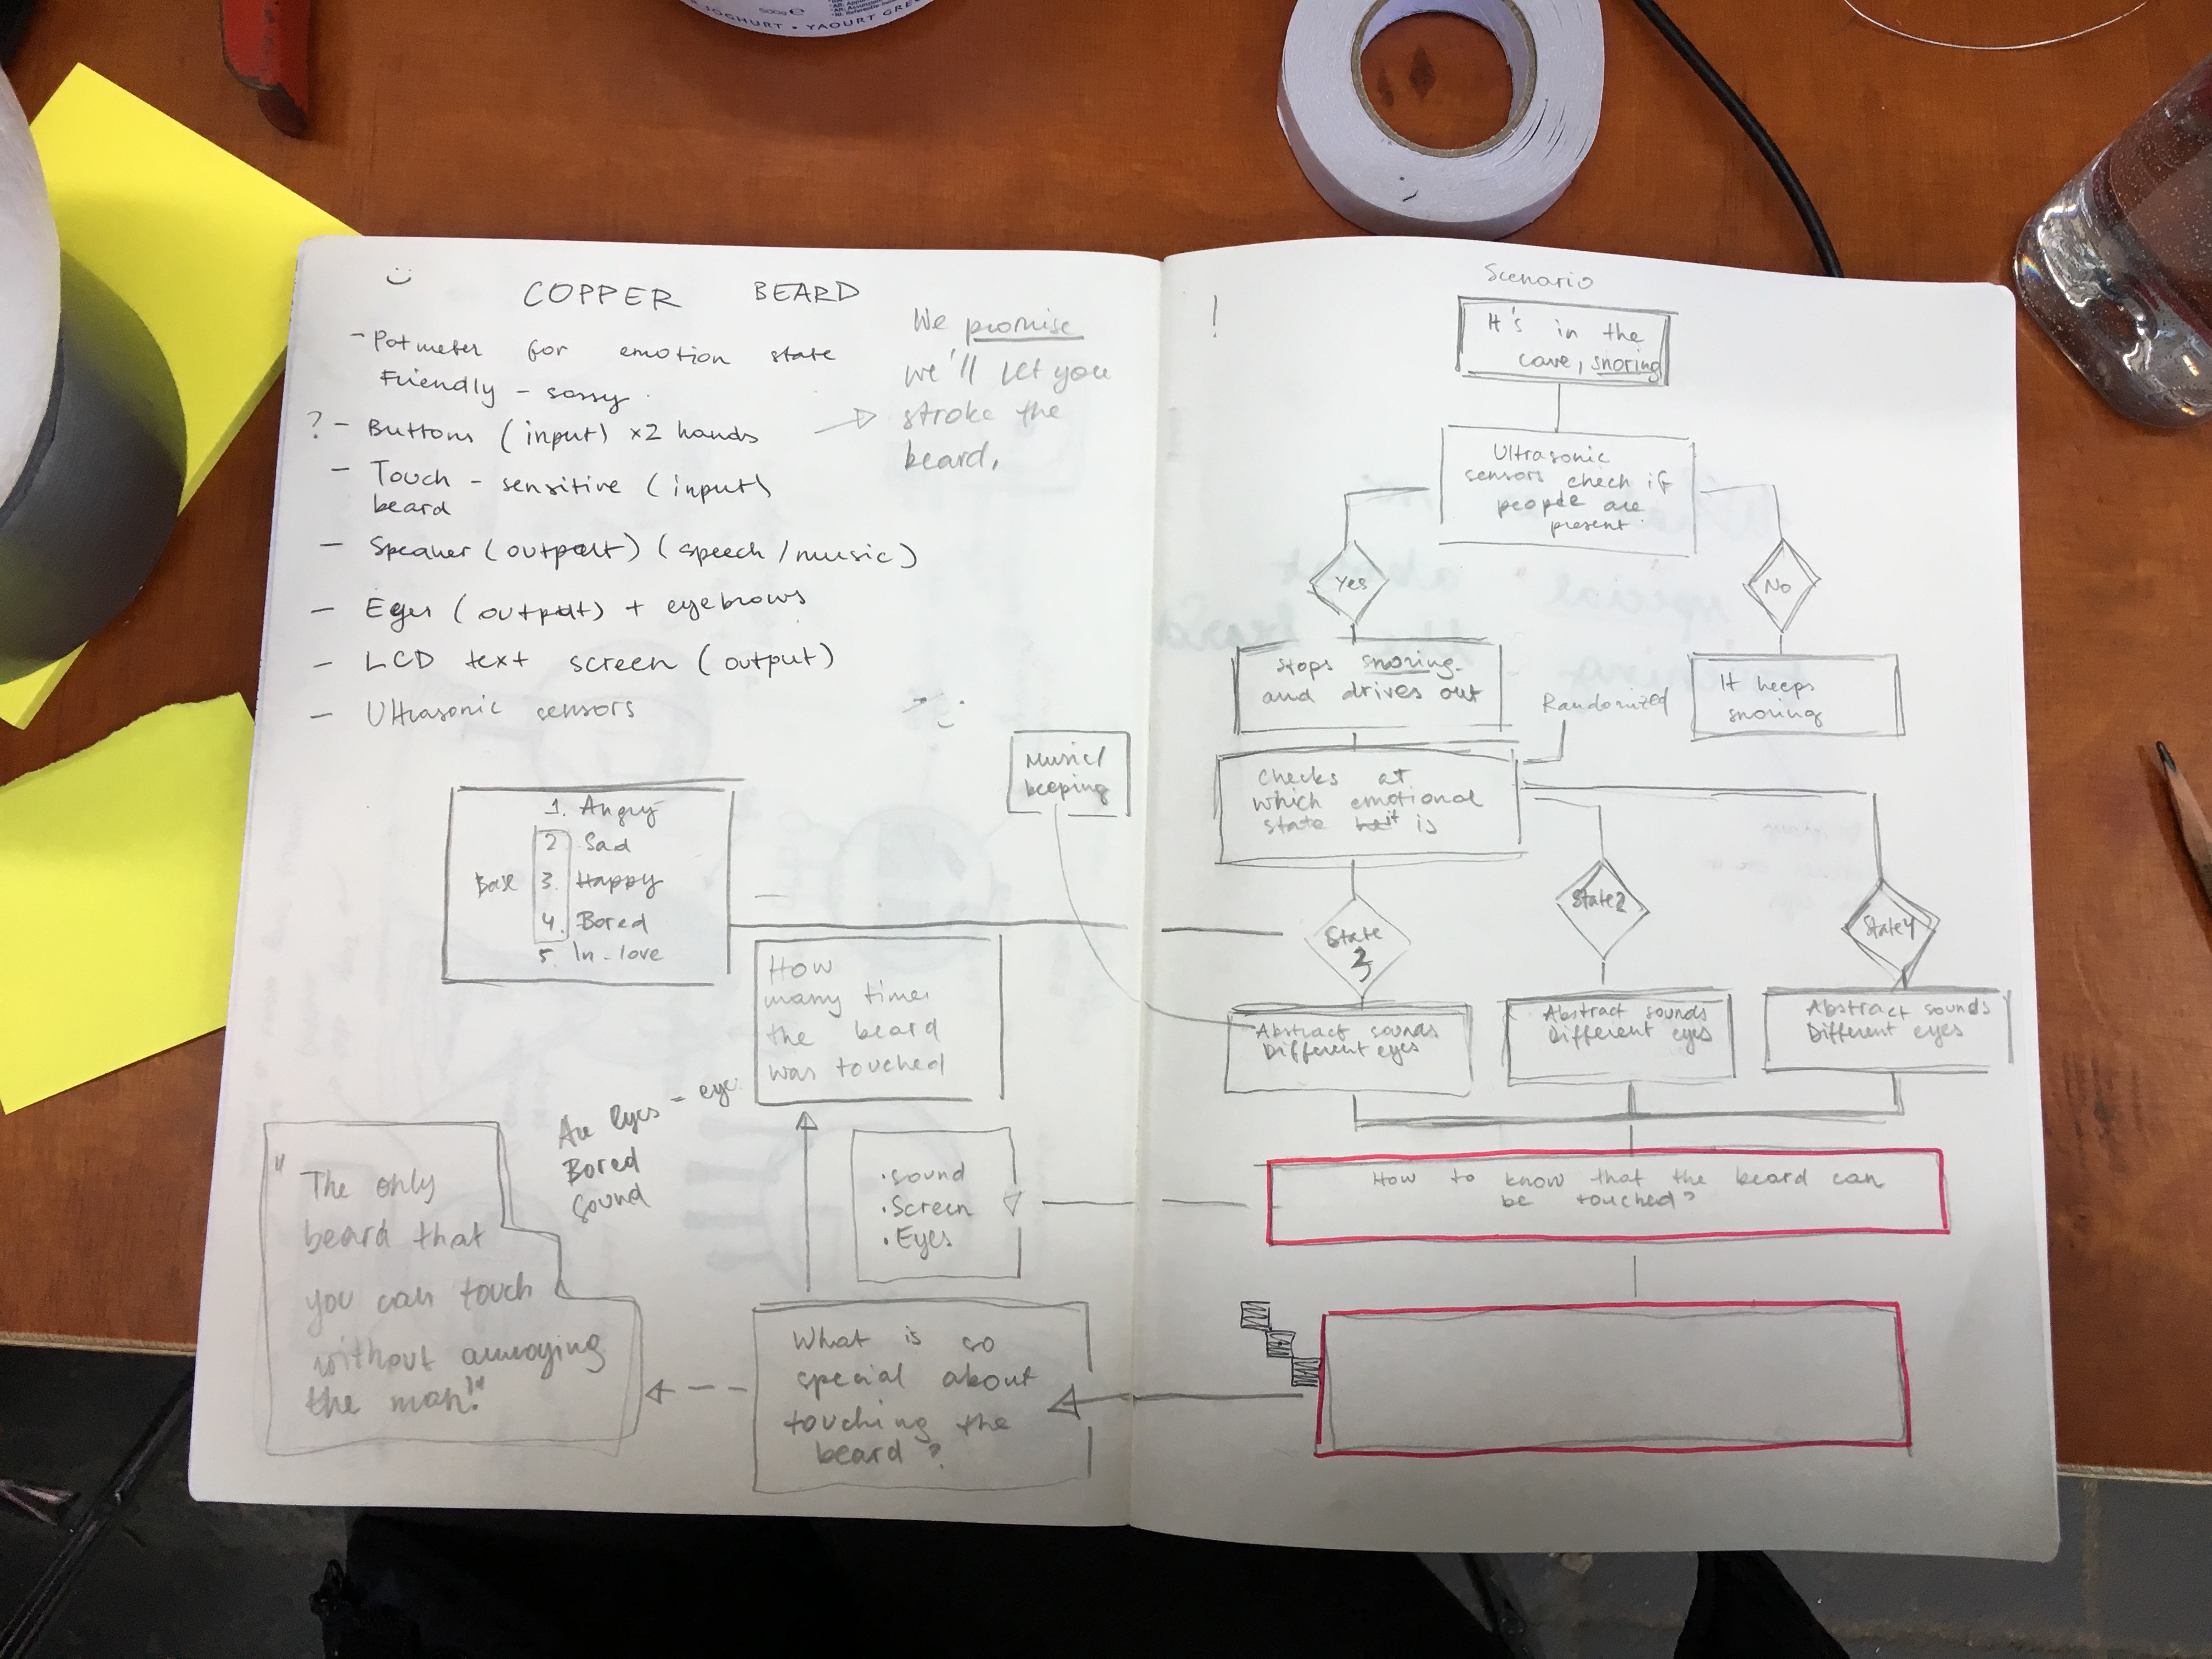 JOGHURT • YAOURT GRE
500g ℮
COPPER BEARD
- Potmeter for emotion state
Friendly - sassy
? - Buttons (input) x2 hands
- Touch - sensitive (input)
beard
- Speaker (output) (speech/music)
- Eyes (output) + eyebrows
- LCD text screen (output)
- Ultrasonic sensors
We promise
we'll let you
stroke the
beard.
Music/
beeping
1. Angry
2. Sad
Base 3. Happy
4. Bored
5. In-love
How
many times
the beard
was touched
Eyes - eye
Bored
Sound
• Sound
• Screen
• Eyes
"The only
beard that
you can touch
without annoying
the man!"
What is so
special about
touching the
beard?
!
Scenario
It's in the
cave, snoring
Ultrasonic
sensors check if
people are
present.
Yes
No
Stops snoring
and drives out
It keeps
snoring
Randomized
Checks at
which emotional
state it is
State
3
State 2
State 4
Abstract sounds
Different eyes
Abstract sounds
Different eyes
Abstract sounds
Different eyes
How to know that the beard can
be touched?